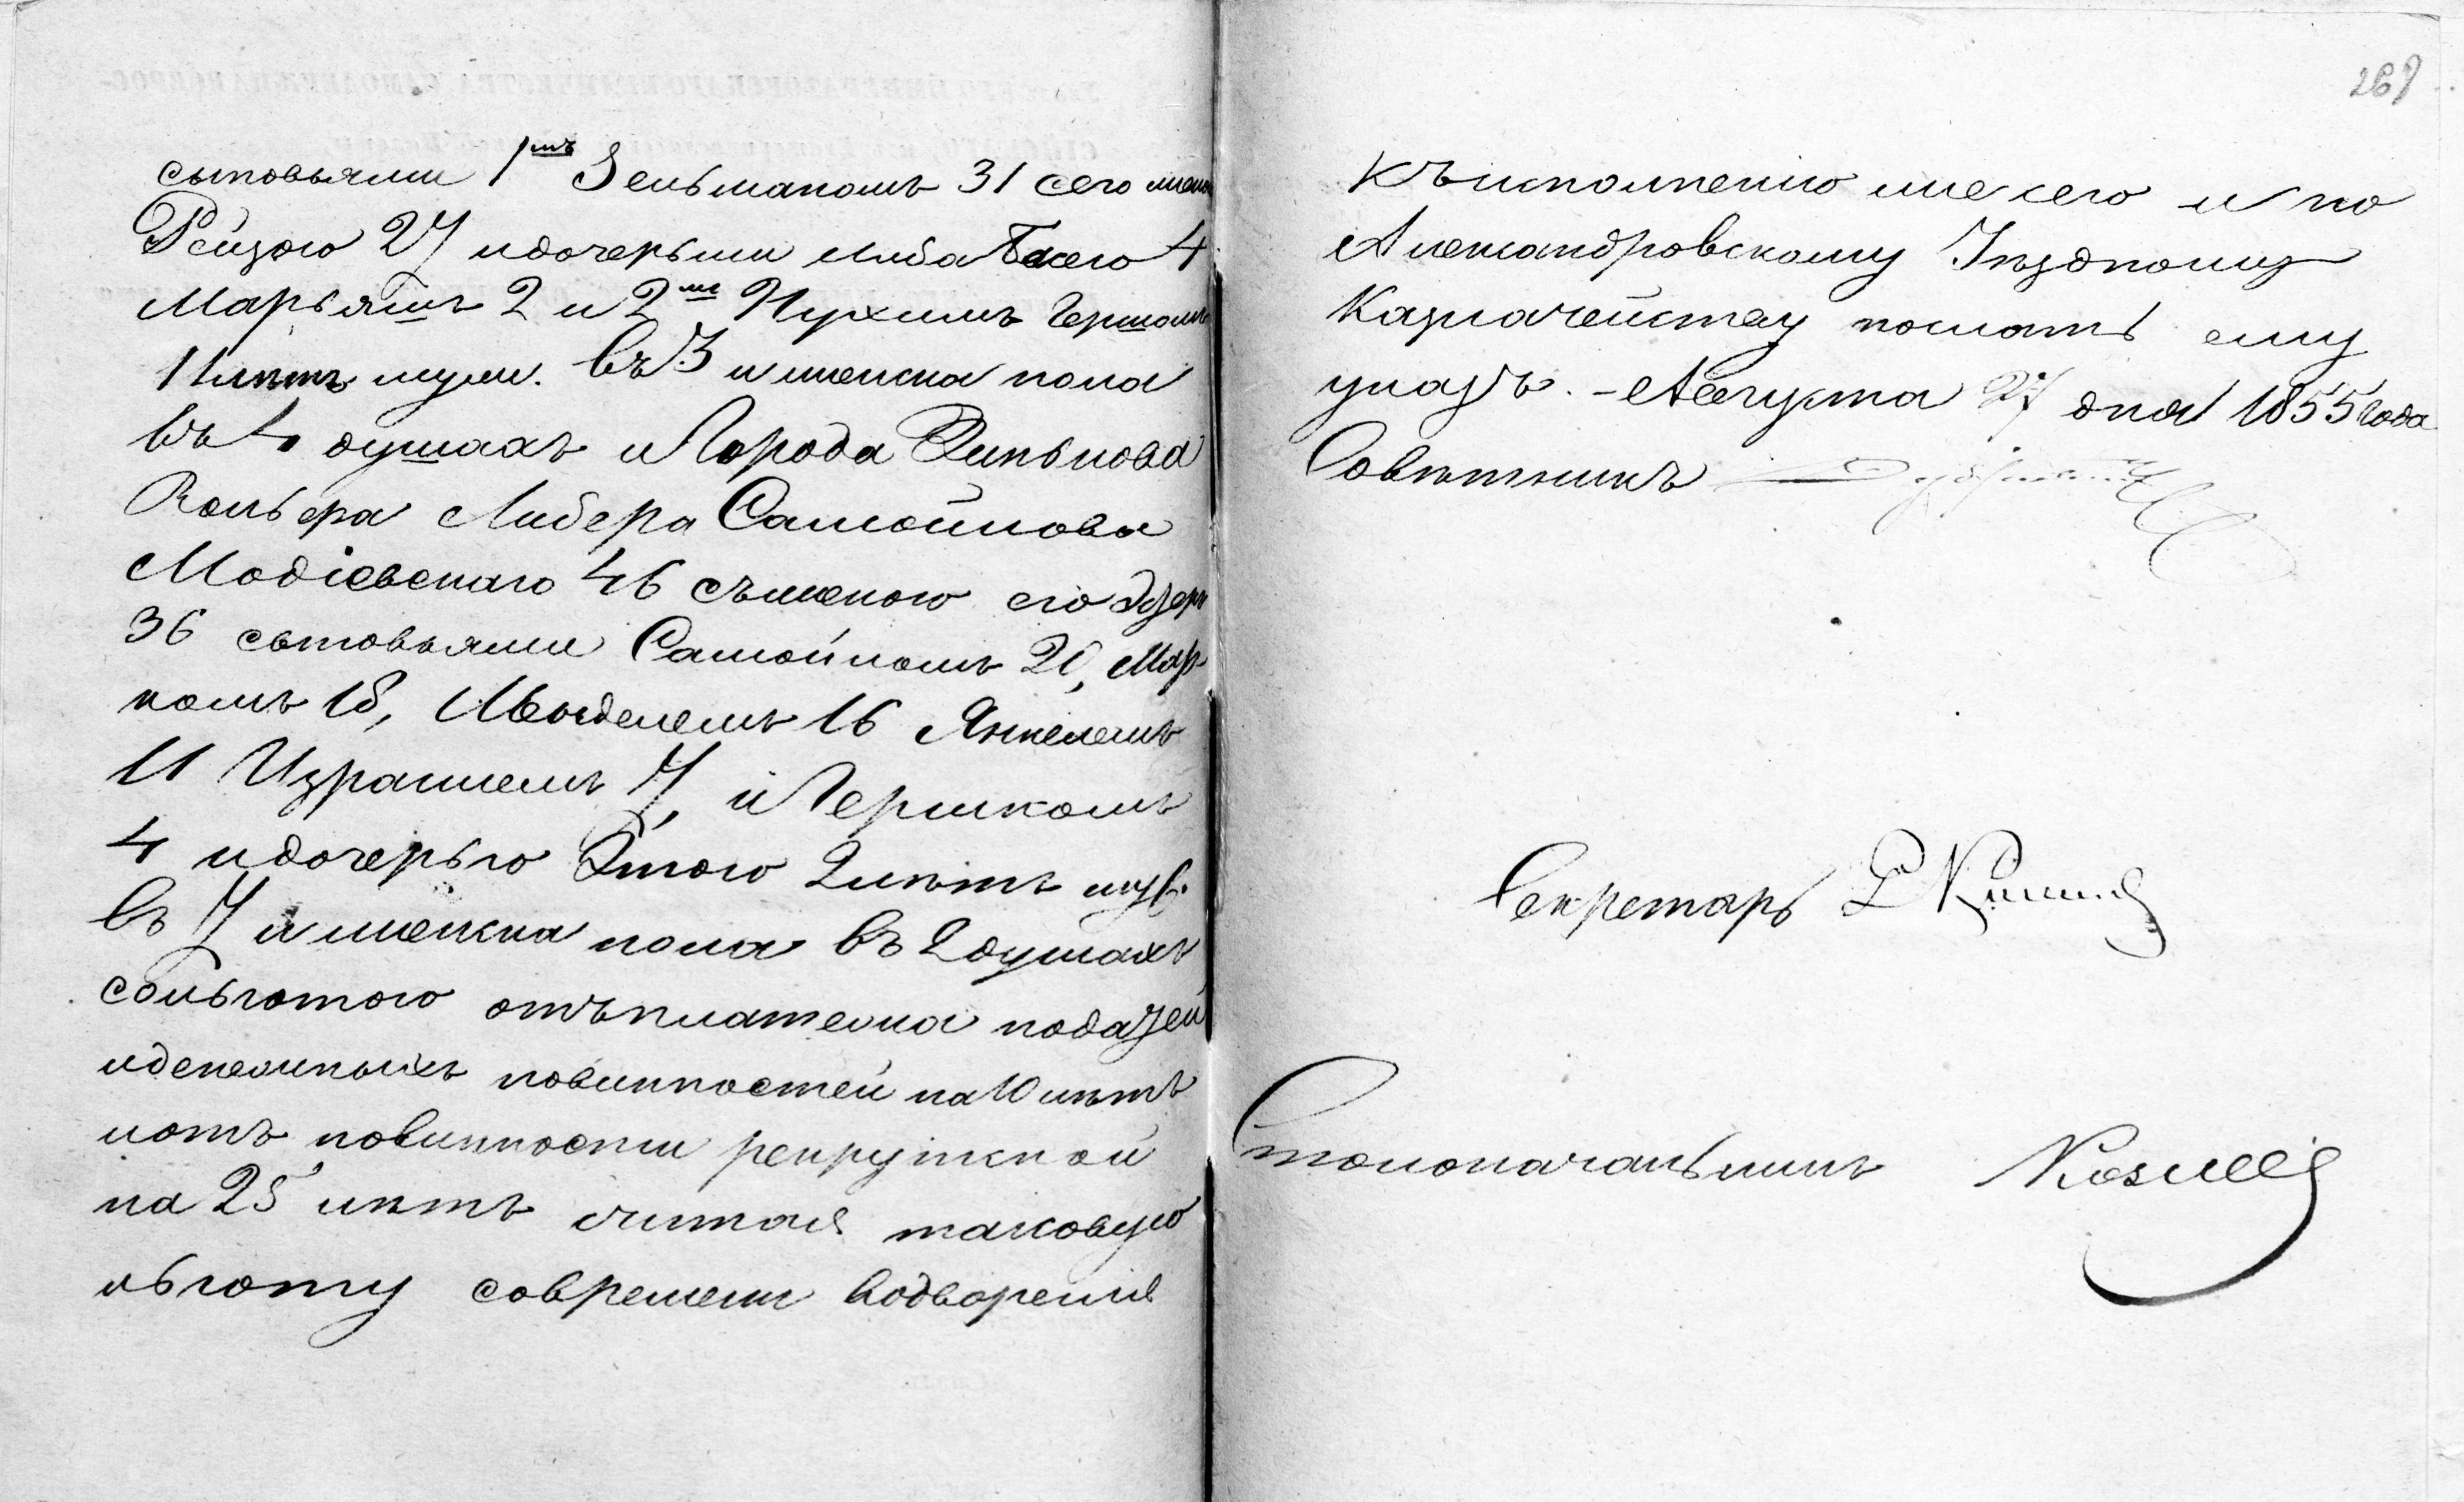 269
сыновьями 1мъ Зельманомъ 31 сего женою
Рейзою 27 идочерьми Либа Басею 4
Марьямъ 2 и 2мъ Нухимъ Гершомъ
11 лѣтъ муж. въ 3 и женска пола
въ 4 душахъ и Города Динькова
Вольфа Либера Самойлова
Модіевскаго 46 съженою его
36 сыновьями Самойломъ 20, Мар-
комъ 18, 16 Янкелемъ
11 Израилемъ 7, и Гершкомъ
4 идочерью Этою 2 лѣтъ муж.
въ 7 и женска пола въ 2 душахъ
сольготою отъплатежа податей
иденежныхъ повинностей на 10 лѣтъ
иотъ повинности рекрутской
на 25 лѣтъ считая таковую
льготу современи водворенія
Къисполненію же сего и по
Александровскому Уѣздному
Казначейству послать ему
указъ. - Августа 27 дня 1855 года
Совѣтникъ
Секретарь
Столоначальникъ